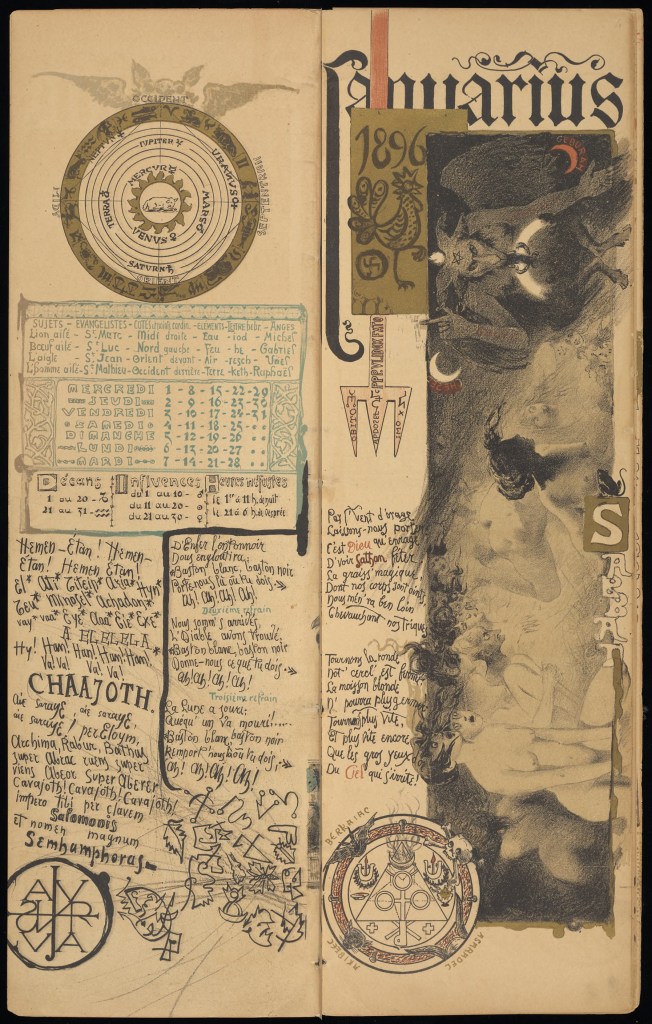 OCCIDENT
NEPTUN
JUPITER
URANUS
MERCUR
MARS
TERRA
VENUS
SATURN
ORIENT
MIDI
SUJETS - EVANGELISTES - CÔTÉS et points cardin. - ELEMENTS - Tétragr. hébr. - ANGES
Lion ailé - St Marc - Midi droite - Eau - iod - Michel
Bœuf ailé - St Luc - Nord gauche - Feu - hé - Gabriel
L'aigle - St Jean - Orient devant - Air - resch - Uriel
L'homme ailé - St Mathieu - Occident derrière - Terre - keth - Raphaël
MERCREDI 1 - 8 - 15 - 22 - 29
JEUDI 2 - 9 - 16 - 23 - 30
VENDREDI 3 - 10 - 17 - 24 - 31
SAMEDI 4 - 11 - 18 - 25
DIMANCHE 5 - 12 - 19 - 26
LUNDI 6 - 13 - 20 - 27
MARDI 7 - 14 - 21 - 28
Décans
1 au 20 - ♑
21 au 31 - ♒
Influences
du 1 au 10 -
du 11 au 20 -
du 21 au 30 -
Heures néfastes
le 1er à 11 h. de nuit
le 21 à 6 h. de vesprée.
Hemen - Etan! Hemen -
Etan! Hemen Etan!
El* Ati* Titeip* Azia* Hyn*
Teu* Minosel* Achadon*
vay* voa* Eye* Aaa* Eie* Exe*
A EL EL EL A
Hy! Hau! Hau! Hau! Hau!
Va! Va! Va! Va!
CHAAJOTH.
Aie saraye, aie saraye,
aie saraye! per Eloym,
Archima, Rabur, Bathas
super Abrac ruens super
viens Abeor Super Aberer
Cavajoth! Cavajoth! Cavajoth!
impero tibi per clavem
Salomonis
et nomen magnum
Semhamphoras -
D'Enfer l'entonnoir
Nous engloutira;
Baston blanc, baston noir
Porte-nous là où tu dois,
Ah! Ah! Ah! Ah!
Deuxième refrain
Nous somm's arrivés,
L'Diable avons trouvé,
Baston blanc, baston noir
Donne-nous ce que tu dois,
Ah! Ah! Ah! Ah!
Troisième refrain
La Lune a souri:
Quequ'un va mouri!.....
Baston blanc, baston noir
Remport'nous d'où tu dois,
Ah! Ah! Ah! Ah!
Januarius
1896
Par l'Vent d'orage
Laissons-nous porter
C'est Dieu qu'enrage
D'voir Sathan fêter
La graiss' magique
Dont nos corps sont oints,
Nous mèn'ra ben loin
Chevauchant nos triques
Tournons la ronde
Not' cercl' est fermé
La moisson blonde
N' pourra plus germer
Tournons plus vite,
Et plus vite encore,
Que les gros yeux d'or
Du Ciel qui s'irrite!
S